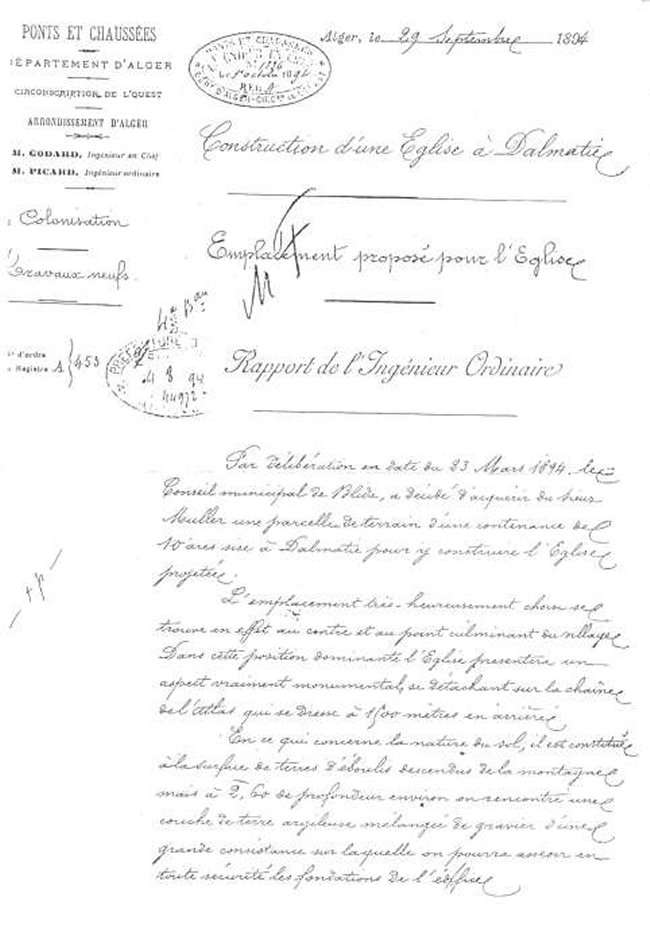 PONTS ET CHAUSSÉES
DÉPARTEMENT D'ALGER
CIRCONSCRIPTION DE L'OUEST
ARRONDISSEMENT D'ALGER
M. GODARD, Ingénieur en Chef
M. PICARD, Ingénieur ordinaire
Colonisation
Travaux neufs.
d'ordre
Registre A 453
PONTS ET CHAUSSÉES
REG. A
4e Bau
44972
Alger, le 29 Septembre 1894
Construction d'une Eglise à Dalmatie
Emplacement proposé pour l'Eglise
Rapport de l'Ingénieur Ordinaire
Par délibération en date du 23 Mars 1894. le
Conseil municipal de Blida, a décidé d'acquérir du sieur
Muller une parcelle de terrain d'une contenance de
10 ares sise à Dalmatie pour y construire l'Eglise
projetée.
L'emplacement très-heureusement choisi se
trouve en effet au centre et au point culminant du village
Dans cette position dominante l'Eglise présentera un
aspect vraiment monumental, se détachant sur la chaîne
de l'Atlas qui se dresse à 1500 mètres en arrière
En ce qui concerne la nature du sol, il est constitué
à la surface de terres d'éboulis descendus de la montagne
mais à 2,60 de profondeur environ on rencontre une
couche de terre argileuse mélangée de gravier d'une
grande consistance sur laquelle on pourra asseoir en
toute sécurité les fondations de l'édifice